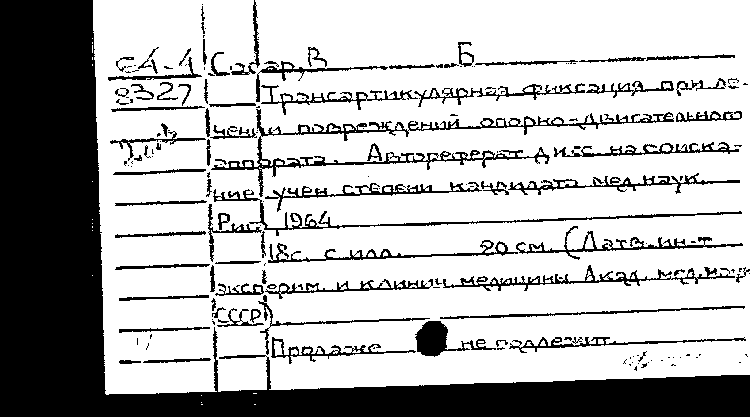 сА-1 В Б
8327 Трансартикулярная фиксация при ле-
чении повреждений опорно-двигательного
аппарата. Автореферат дисс. на соиска-
ние учен. степени кандидата мед. наук.
Рига, 1964.
18с. с илл. 20 см. (Латв. ин-т
эксперим. и клинич. медицины Акад. мед. наук
СССР).
Продаже не подлежит.